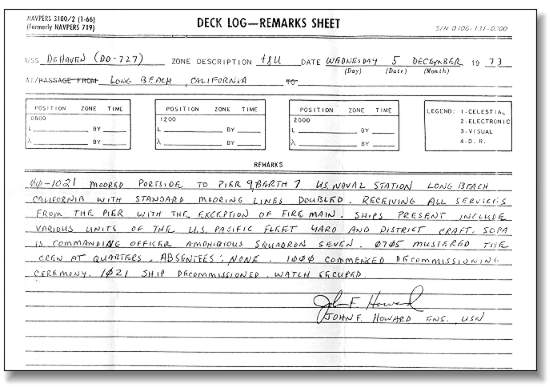 NAVPERS 3100/2 (1-66)
(Formerly NAVPERS 719)
DECK LOG—REMARKS SHEET
S/N 0106-131-0200
USS DEHAVEN (DD-727) ZONE DESCRIPTION +8U DATE WEDNESDAY 5 DECEMBER 19 73
(Day) (Date) (Month)
AT/PASSAGE FROM LONG BEACH, CALIFORNIA TO
POSITION ZONE TIME
0800
L BY
λ BY
POSITION ZONE TIME
1200
L BY
λ BY
POSITION ZONE TIME
2000
L BY
λ BY
LEGEND: 1-CELESTIAL
2-ELECTRONIC
3-VISUAL
4-D.R.
REMARKS
00-1021 MOORED PORTSIDE TO PIER 9, BERTH 7 U.S. NAVAL STATION LONG BEACH
CALIFORNIA WITH STANDARD MOORING LINES DOUBLED. RECEIVING ALL SERVICES
FROM THE PIER WITH THE EXCEPTION OF FIRE MAIN. SHIPS PRESENT INCLUDE
VARIOUS UNITS OF THE U.S. PACIFIC FLEET YARD AND DISTRICT CRAFT. SOPA
IS COMMANDING OFFICER AMPHIBIOUS SQUADRON SEVEN. 0705 MUSTERED THE
CREW AT QUARTERS. ABSENTEES: NONE. 1000 COMMENCED DECOMMISSIONING
CEREMONY. 1021 SHIP DECOMMISSIONED. WATCH SECURED.
John F. Howard
JOHN F. HOWARD ENS. USN